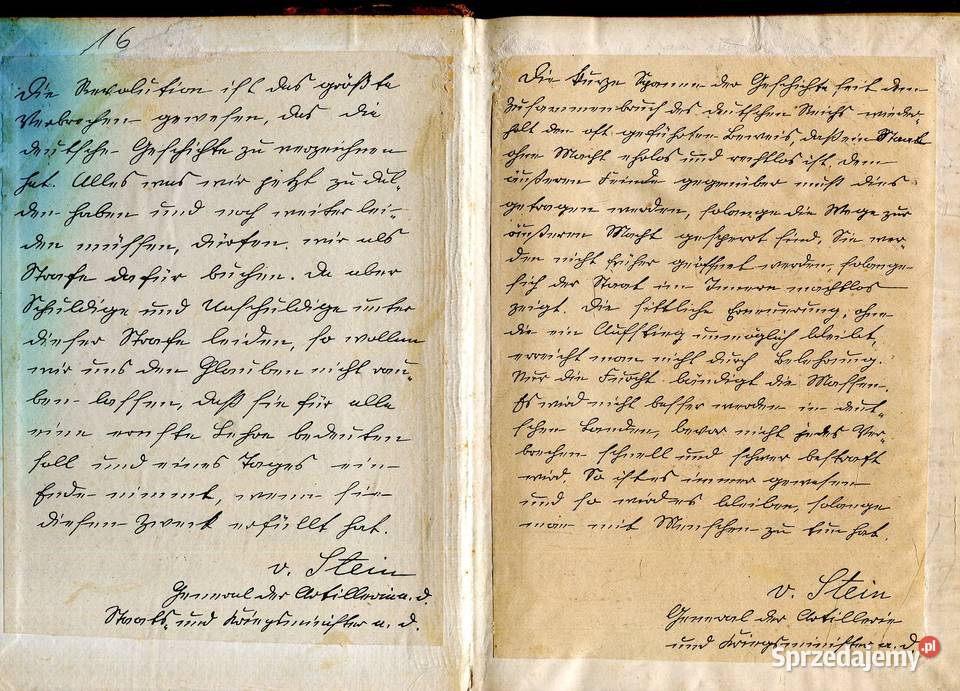 16
Die Revolution ist das größte
Verbrechen gewesen, das die
deutsche Geschichte zu verzeichnen
hat. Alles was wir jetzt zu dul-
den haben und noch weiter lei-
den müssen, dürfen wir als
Strafe dafür buchen. Da aber
Schuldige und Unschuldige unter
dieser Strafe leiden, so wollen
wir uns den Glauben nicht rau-
ben lassen, daß sie für alle
eine ernste Lehre bedeuten
soll und eines Tages ein
Ende nimmt, wenn sie
diesen Zweck erfüllt hat.
v. Stein
General der Artillerie a. d.
Staats- und Kriegsminister a. d.
Die kurze Spanne der Geschichte seit dem
Zusammenbruch des deutschen Reichs wieder
holt den oft geführten Beweis, daß ein Staat
ohne Macht ehrlos und rechtlos ist dem
äußeren Feinde gegenüber muß dies
getragen werden, solange die Wege zur
äußeren Macht gesperrt sind. Sie wer-
den nicht früher geöffnet werden, solange
sich der Staat im Innern machtlos
zeigt. Die sittliche Erneuerung, ohne
die ein Aufstieg unmöglich bleibt,
erreicht man nicht durch Belehrung.
Nur die Furcht bändigt die Massen.
Es wird nicht besser werden in deut-
schen Landen, bevor nicht jedes Ver-
brechen schnell und schwer bestraft
wird. So ist es immer gewesen
und so wird es bleiben, solange
man mit Menschen zu tun hat.
v. Stein
General der Artillerie
und Kriegsminister a. d.
Sprzedajemy.pl